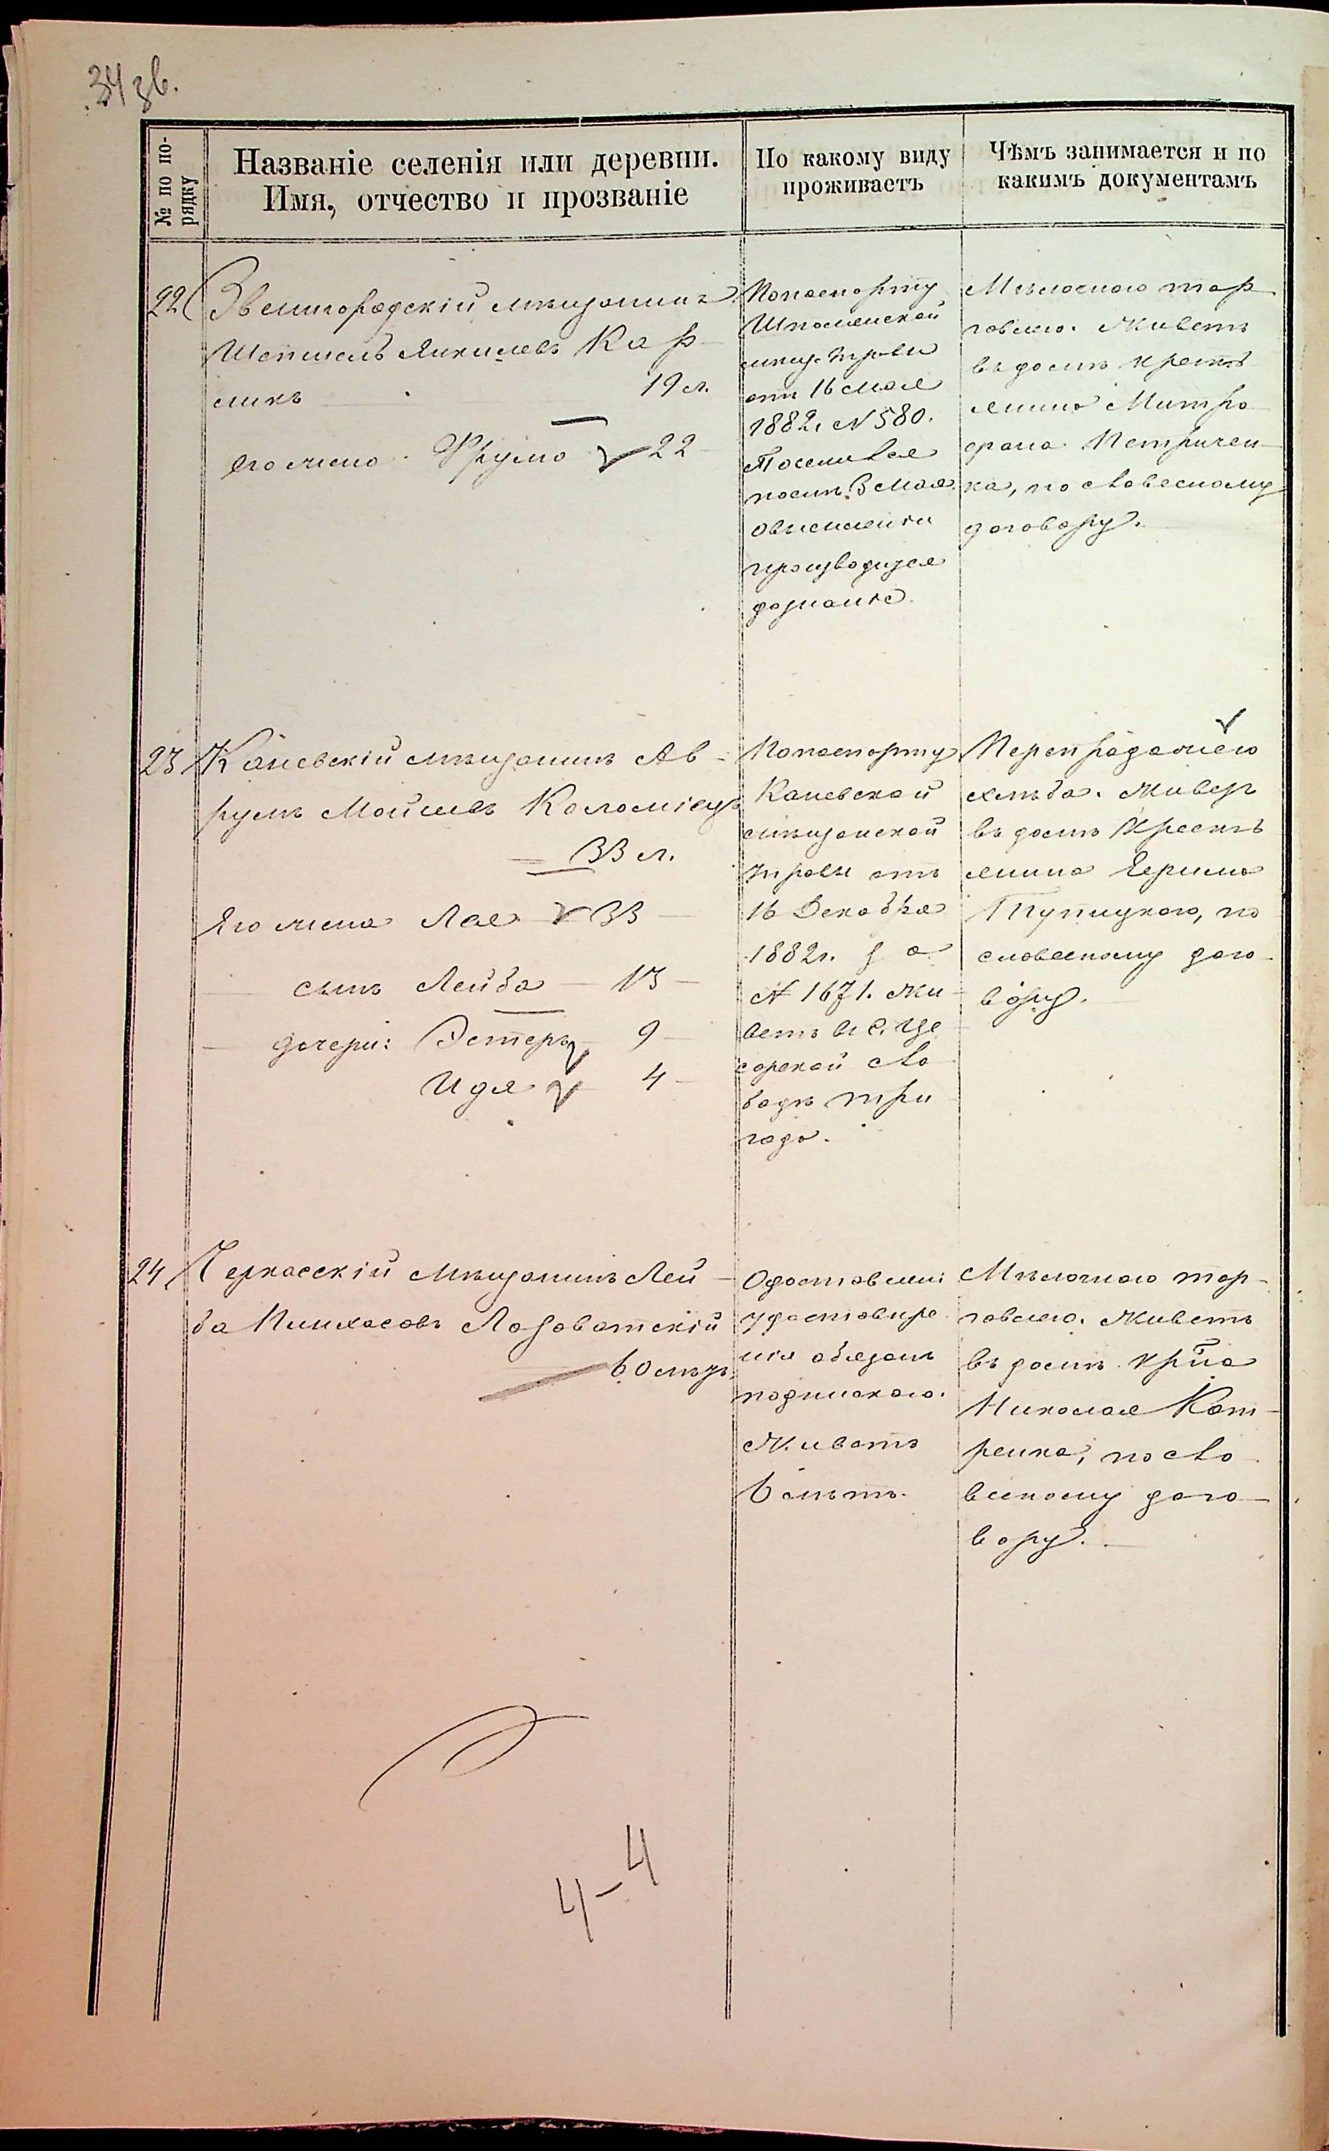 34 зв.
№ по по-
рядку
Названіе селенія или деревни.
Имя, отчество и прозваніе
По какому виду
проживаетъ
Чѣмъ занимается и по
какимъ документамъ
22
Звенигородскій мѣщанинъ
Шепшель Янкилевъ Кар-
ликъ 19 л.
его жена Фрума 22
По паспорту
Шполянской
мѣщ. управы
отъ 16 мая
1882 г. № 580.
Поселился
послѣ 3 мая.
О выселеніи
производится
дознаніе.
Мѣлочною тор
говлею. Живетъ
въ домѣ кресть
янина Митро
фана Петричен-
ка, по словесному
договору.
23
Каневскій мѣщанинъ Ав-
румъ Мойшевъ Коломіецъ
33 л.
Его жена Лая 33
сынъ Лейба 13
дочери: Эстеръ 9
Идя 4
По паспорту
Каневской
мѣщанской
управы отъ
16 Декабря
1882 г. за
№ 1671. Жи
ветъ въ с.
сло
бодѣ три
года.
Перепродажею
хлѣба. Живетъ
въ домѣ Кресть
янина Ефима
Тупицкого, по
словесному дого-
вору.
24
Черкасскій мѣщанинъ Лей-
ба Пинхасовъ Лозоватскій
60 лѣтъ
О доставленіи
удостовѣре
нія обязанъ
подпискою.
Живетъ
6 лѣтъ.
Мѣлочною тор-
говлею. Живетъ
въ домѣ кр-на
Николая Кот-
ренка, по сло
весному дого-
вору.
4-4